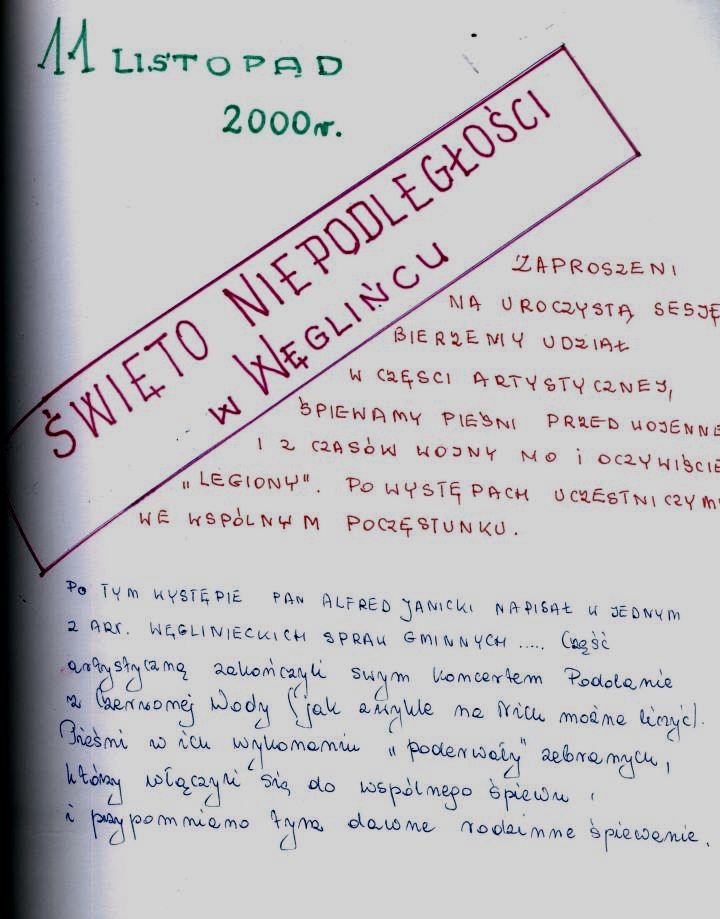 11 LISTOPAD
2000 r.
ŚWIĘTO NIEPODLEGŁOŚCI
W WĘGLIŃCU
ZAPROSZENI
NA UROCZYSTĄ SESJĘ
BIERZEMY UDZIAŁ
W CZĘSCI ARTYSTYCZNEJ,
ŚPIEWAMY PIEŚNI PRZEDWOJENNE
I Z CZASÓW WOJNY NO I OCZYWIŚCIE
„LEGIONY". PO WYSTĘPACH UCZESTNICZYMY
WE WSPÓLNYM POCZĘSTUNKU.
PO TYM WYSTĘPIE PAN ALFRED JANICKI NAPISAŁ W JEDNYM
Z ART. WĘGLINIECKICH SPRAW GMINNYCH ..... Część
artystyczną zakończyli swym koncertem Podolanie
z Czerwonej Wody (jak zwykle na Nich można liczyć).
Pieśni w ich wykonaniu „poderwały" zebranych,
którzy włączyli się do wspólnego śpiewu,
i przypomniano tym dawne rodzinne śpiewanie.